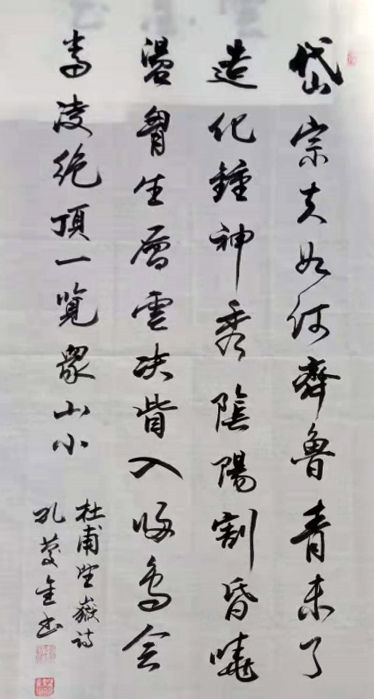 岱宗夫如何齊魯青未了
造化鍾神秀陰陽割昏曉
盪胷生層雲決眥入歸鳥会
當凌絶頂一覽眾山小
杜甫望嶽詩
孔慶金书